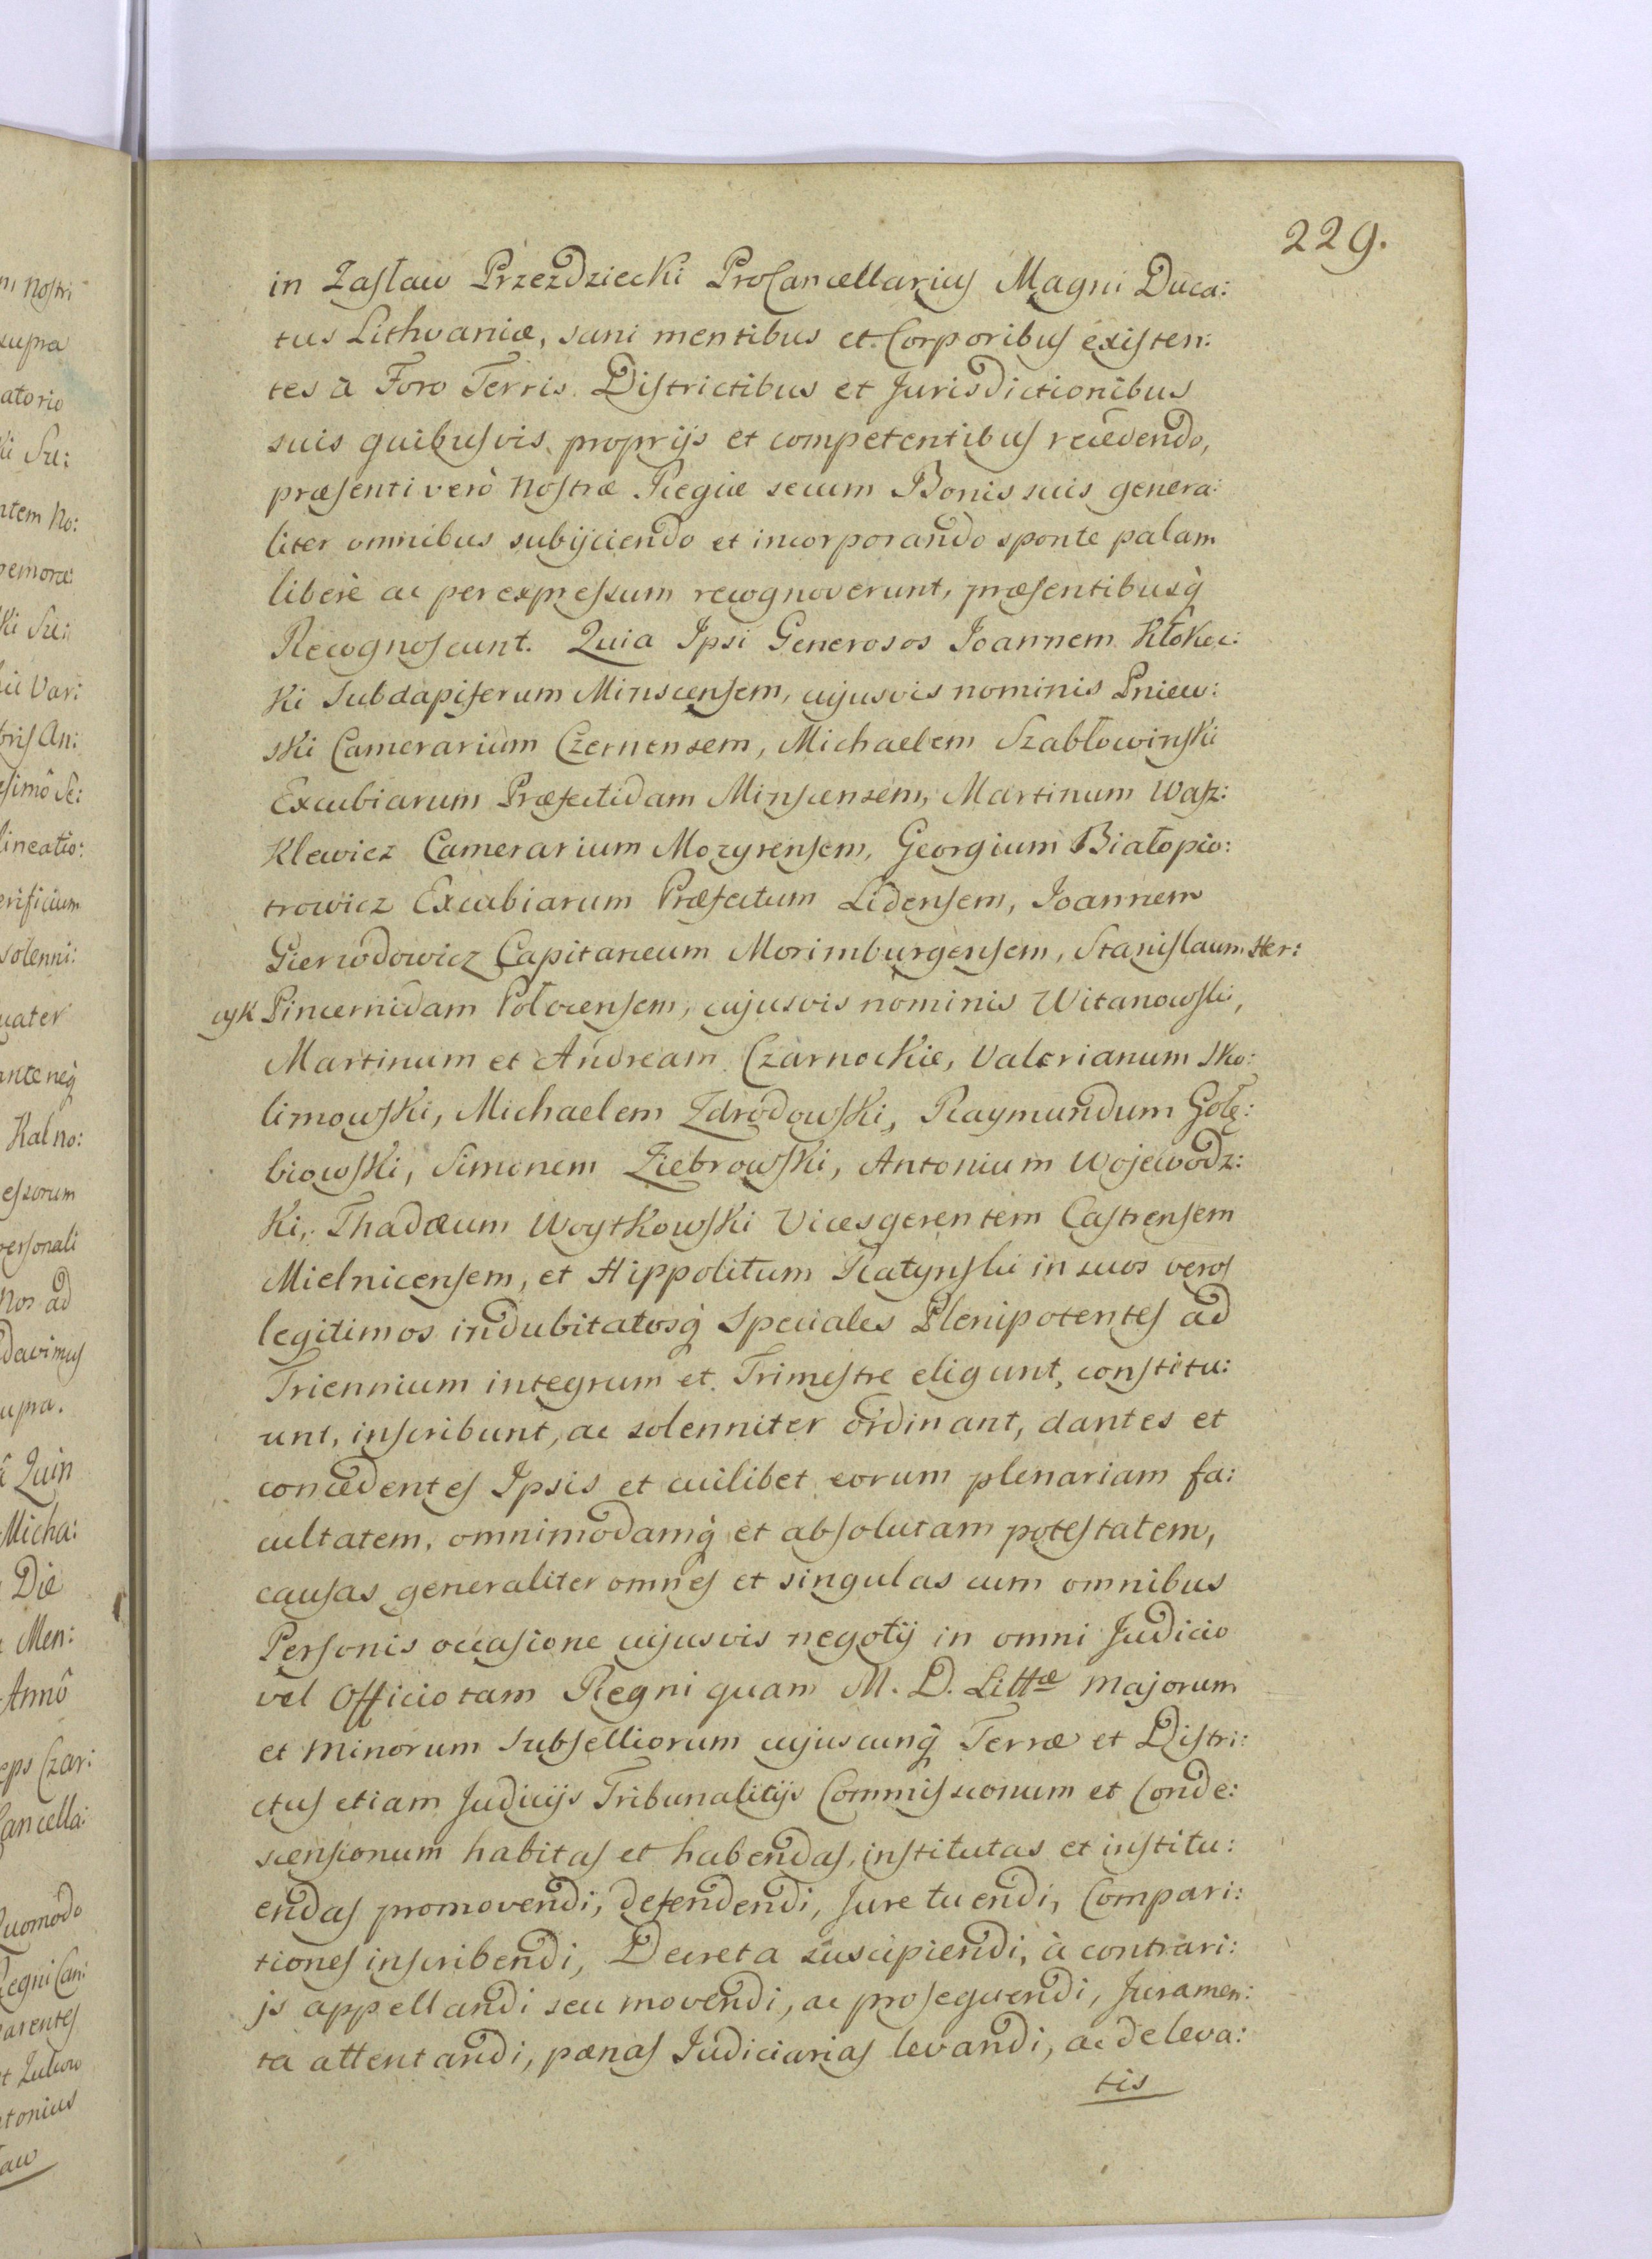 229.
in Zasław Przezdziecki ProCancellarius Magni Duca:
tus Lithvaniæ, sani mentibus et Corporibus existen:
tes à Foro Terris Districtibus et Jurisdictionibus
suis quibusvis proprijs et competentibus recedendo,
præsenti verò Nostræ Regiæ secum Bonis suis genera:
liter omnibus subijciendo et incorporando sponte palam
liberè ac per expressum recognoverunt, præsentibusq̀
Recognoscunt. Quia Ipsi Generosos Joannem Kłokoc:
ki Subdapiferum Minscensem, cujusvis nominis Pniew:
ski Camerarium Czernensem, Michaelem Szabłowinski
Excubiarum Præfectidam Minscensem, Martinum Wasz:
klewicz Camerarium Mozyrensem, Georgium Białopio:
trowicz Excubiarum Præfectum Lidensem, Joannem
Gierwodowicz Capitaneum Morimburgensem, Stanislaum Her:
cyk Pincernidam Połocensem, cujusvis nominis Witanowski,
Martinum et Andream Czarnockie, Valerianum Sko:
limowski, Michaelem Zdrodowski, Raymundum Gołę:
biowski, Simonem Ziebrowski, Antonium Wojewodz:
ki, Thadæum Woytkowski Vicesgerentem Castrensem
Mielnicensem, et Hippolitum Ratynski in suos veros
legitimos indubitatosq̀ Speciales Plenipotentes ad
Triennium integrum et Trimestre eligunt, constitu:
unt, inscribunt, ac solenniter ordinant, dantes et
concedentes Ipsis et cuilibet eorum plenariam fa:
cultatem, omnimodamq̀ et absolutam potestatem,
causas generaliter omnes et singulas cum omnibus
Personis occasione cujusvis negotij in omni Judicio
vel Officio tam Regni quam M. D. Littæ Majorum
et Minorum Subselliorum cujuscunq̀ Terræ et Distri:
ctus etiam Judicijs Tribunalitijs Commissionum et Conde:
scensionum habitas et habendas, institutas et institu:
endas promovendi, defendendi, Jure tuendi, Compari:
tiones inscribendi, Decreta suscipiendi, à contrari:
js appellandi seu movendi, ac prosequendi, Juramen:
ta attentandi, pænas Judiciarias levandi, ac de leva:
tis